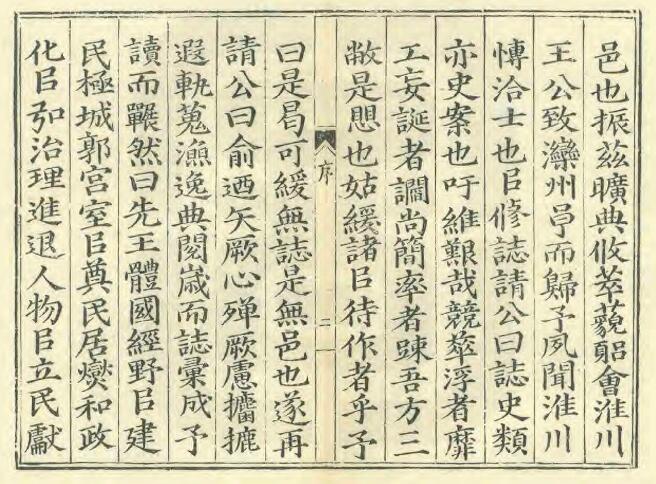 邑也振茲曠典攸萃藐躳會淮川
王公致灤州而歸予夙聞淮川
博洽士也㠯修誌請公曰誌史類
亦史案也吁維艱哉競蕐浮者靡
工妄誕者讕尚簡率者踈吾方三
敝是愳也姑緩諸㠯待作者乎予
序 二
曰是曷可緩無誌是無邑也遂再
請公曰俞迺矢厥心殫厥慮攟摭
遐軌蒐漁逸典閱歲而誌彙成予
讀而囅然曰先王體國經野㠯建
民極城郭宮室㠯奠民居爕和政
化㠯弘治理進退人物㠯立民獻